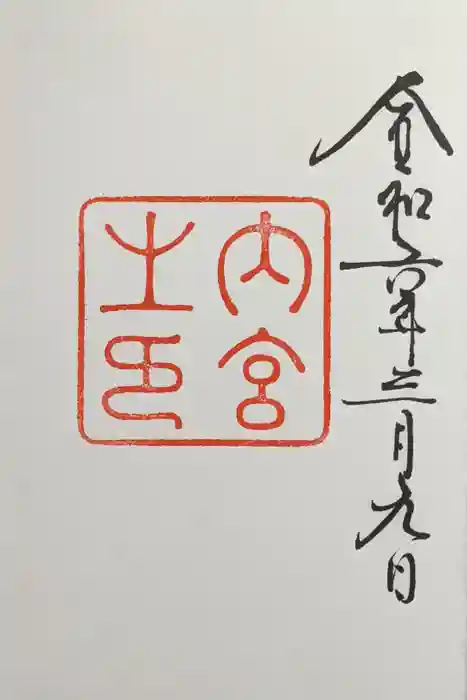 令和六年三月九日
内宮
之印